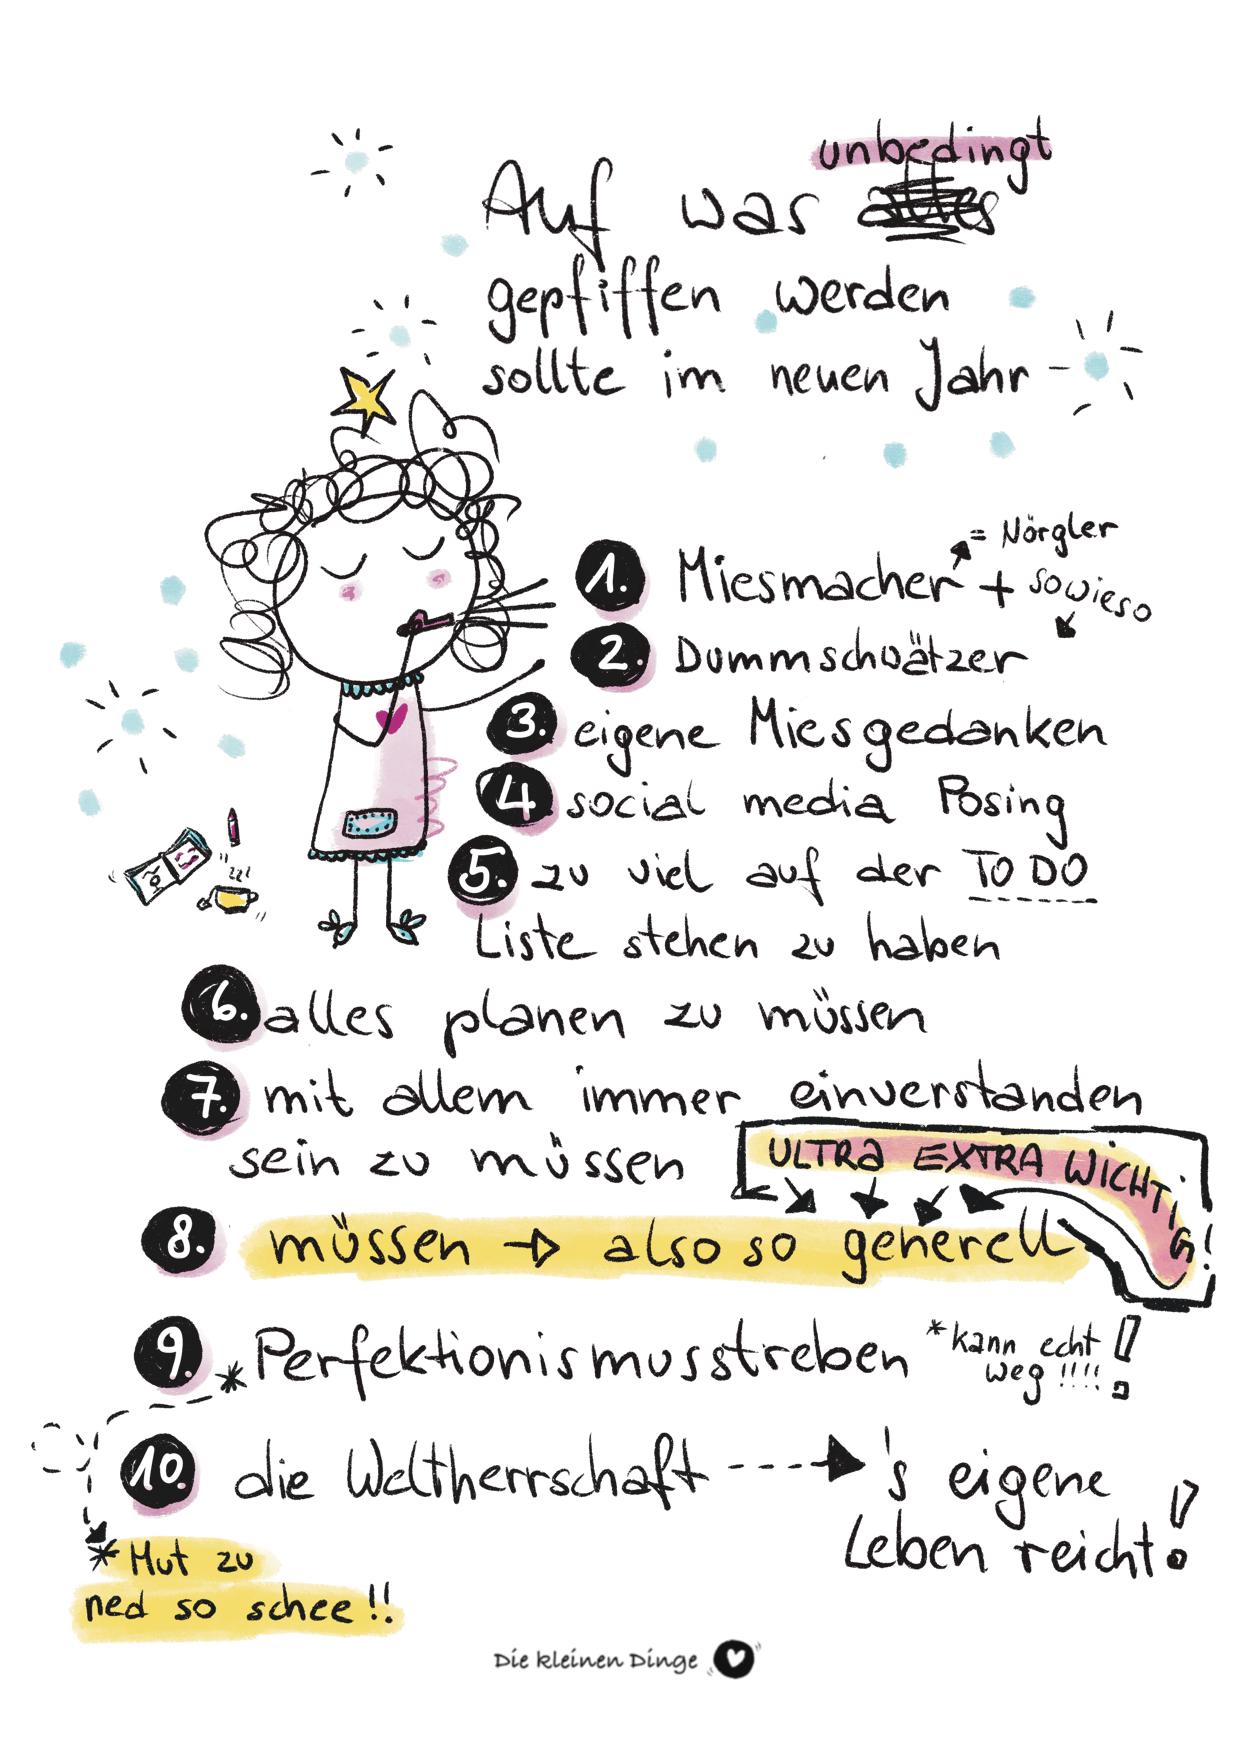 unbedingt
Auf was alles
gepfiffen werden
sollte im neuen Jahr
= Nörgler
1. Miesmacher + sowieso
2. Dummschwätzer
3. eigene Miesgedanken
4. social media Posing
5. zu viel auf der TO DO
Liste stehen zu haben
6. alles planen zu müssen
7. mit allem immer einverstanden
sein zu müssen
ULTRA EXTRA WICHTIG!
8. müssen → also so generell
9. *Perfektionismusstreben *kann echt
weg !!!! !
10. die Weltherrschaft ---→ 's eigene
Leben reicht!
* Mut zu
ned so schee !!
Die kleinen Dinge